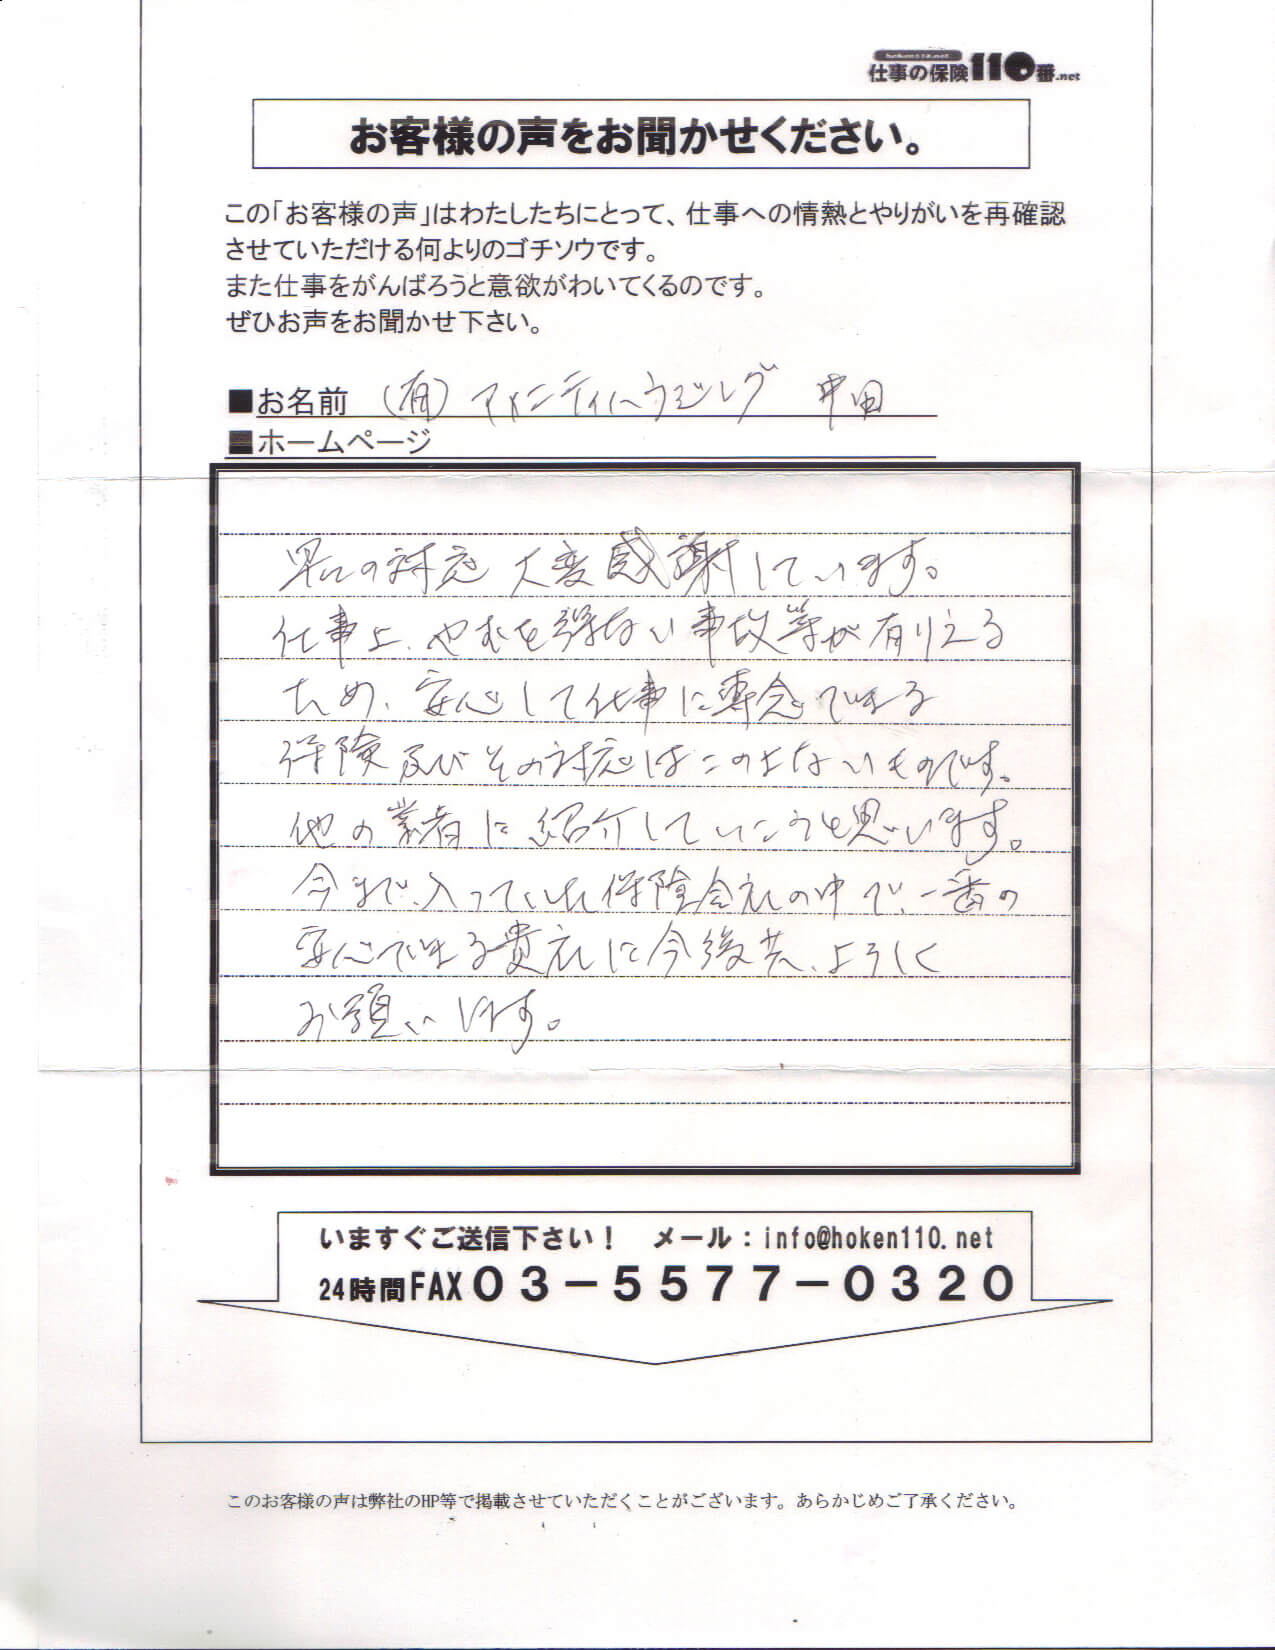 hoken110.net
仕事の保険110番.net
お客様の声をお聞かせください。
この「お客様の声」はわたしたちにとって、仕事への情熱とやりがいを再確認
させていただける何よりのゴチソウです。
また仕事をがんばろうと意欲がわいてくるのです。
ぜひお声をお聞かせ下さい。
■お名前 (有)アメニティハウジング 中田
■ホームページ
早々の対応 大変感謝しています。
仕事上、やむを得ない事故等が有りえる
ため、安心して仕事に専念できる
保険及びその対応はこの上ないものです。
他の業者に紹介していこうと思います。
今まで、入っていた保険会社の中で、一番の
安心できる貴社に今後共、よろしく
お願いします。
いますぐご送信下さい! メール:info@hoken110.net
24時間FAX03-5577-0320
このお客様の声は弊社のHP等で掲載させていただくことがございます。あらかじめご了承ください。